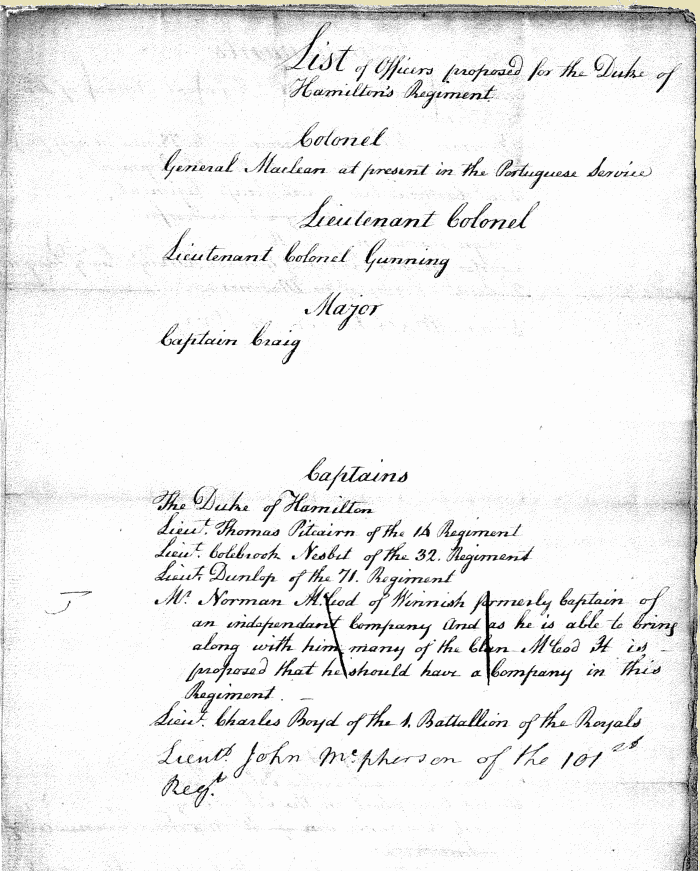 List of Officers proposed for the Duke of
Hamilton's Regiment
Colonel
General Maclean at present in the Portuguese Service
Lieutenant Colonel
Lieutenant Colonel Gunning
Major
Captain Craig
Captains
The Duke of Hamilton
Lieut. Thomas Pitcairn of the 14 Regiment
Lieut. Colebrook Nesbit of the 32. Regiment
Lieut. Dunlop of the 71. Regiment
Mr. Norman McLeod of Winnish formerly Captain of
an independant Company And as he is able to bring
along with him many of the Clan McLeod It is
proposed that he should have a Company in this
Regiment
Lieut. Charles Boyd of the 1. Battallion of the Royals
Lieut. John McPherson of the 101
Regt.